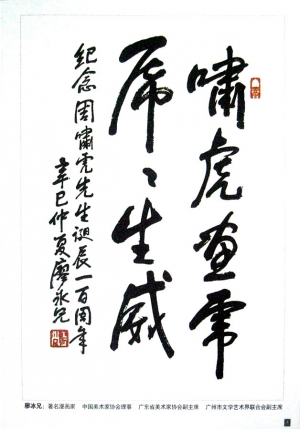 啸虎画虎
虎虎生威
纪念周啸虎先生诞辰一百周年
辛巳仲夏廖冰兄
廖冰兄：著名漫画家　中国美术家协会理事　广东省美术家协会副主席　广州市文学艺术界联合会副主席